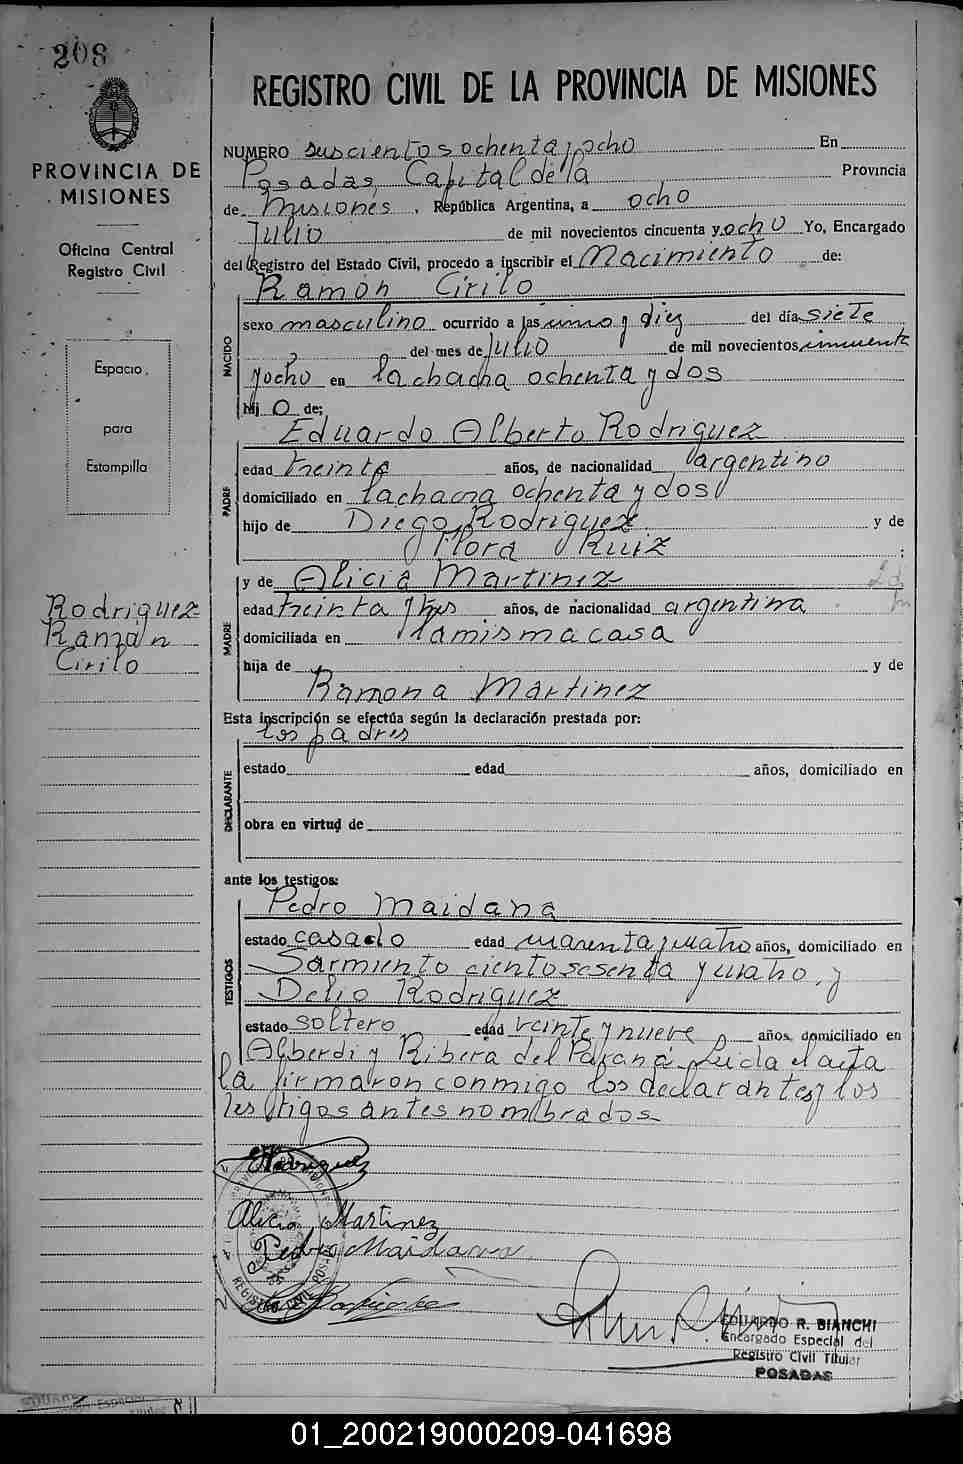 208
PROVINCIA DE
MISIONES
Oficina Central
Registro Civil
Espacio
para
Estampilla
Rodriguez
Ramón
Cirilo
REGISTRO CIVIL DE LA PROVINCIA DE MISIONES
NUMERO duscientos ochenta y ocho En
Posadas, Capital de la Provincia
de Misiones, República Argentina, a ocho
Julio de mil novecientos cincuenta y ocho Yo, Encargado
del Registro del Estado Civil, procedo a inscribir el Nacimiento de:
Ramón Cirilo
NACIDO
sexo masculino ocurrido a las uno y diez del día siete
del mes de Julio de mil novecientos cincuenta
y ocho en la chacra ochenta y dos
hijo de:
Eduardo Alberto Rodriguez
PADRE
edad treinta años, de nacionalidad argentino
domiciliado en la chacra ochenta y dos
hijo de Diego Rodriguez y de
Flora Ruiz ;
y de Alicia Martinez
MADRE
edad treinta y tres años, de nacionalidad argentina
domiciliada en la misma casa
hija de y de
Ramona Martinez
Esta inscripción se efectúa según la declaración prestada por:
los padres
DECLARANTE
estado edad años, domiciliado en
obra en virtud de
ante los testigos:
Pedro Maidana
TESTIGOS
estado casado edad cuarenta y cuatro años, domiciliado en
Sarmiento ciento sesenta y cuatro, y
Delio Rodriguez
estado soltero edad veinte y nueve años, domiciliado en
Alberdi y Ribera del Paraná. Leida el acta
la firmaron conmigo los declarantes y los
testigos antes nombrados
Rodriguez
Alicia Martinez
Pedro Maidana
REGISTRO CIVIL POSADAS
EDUARDO R. BIANCHI
Encargado Especial del
Registro Civil Titular
POSADAS
01_200219000209-041698